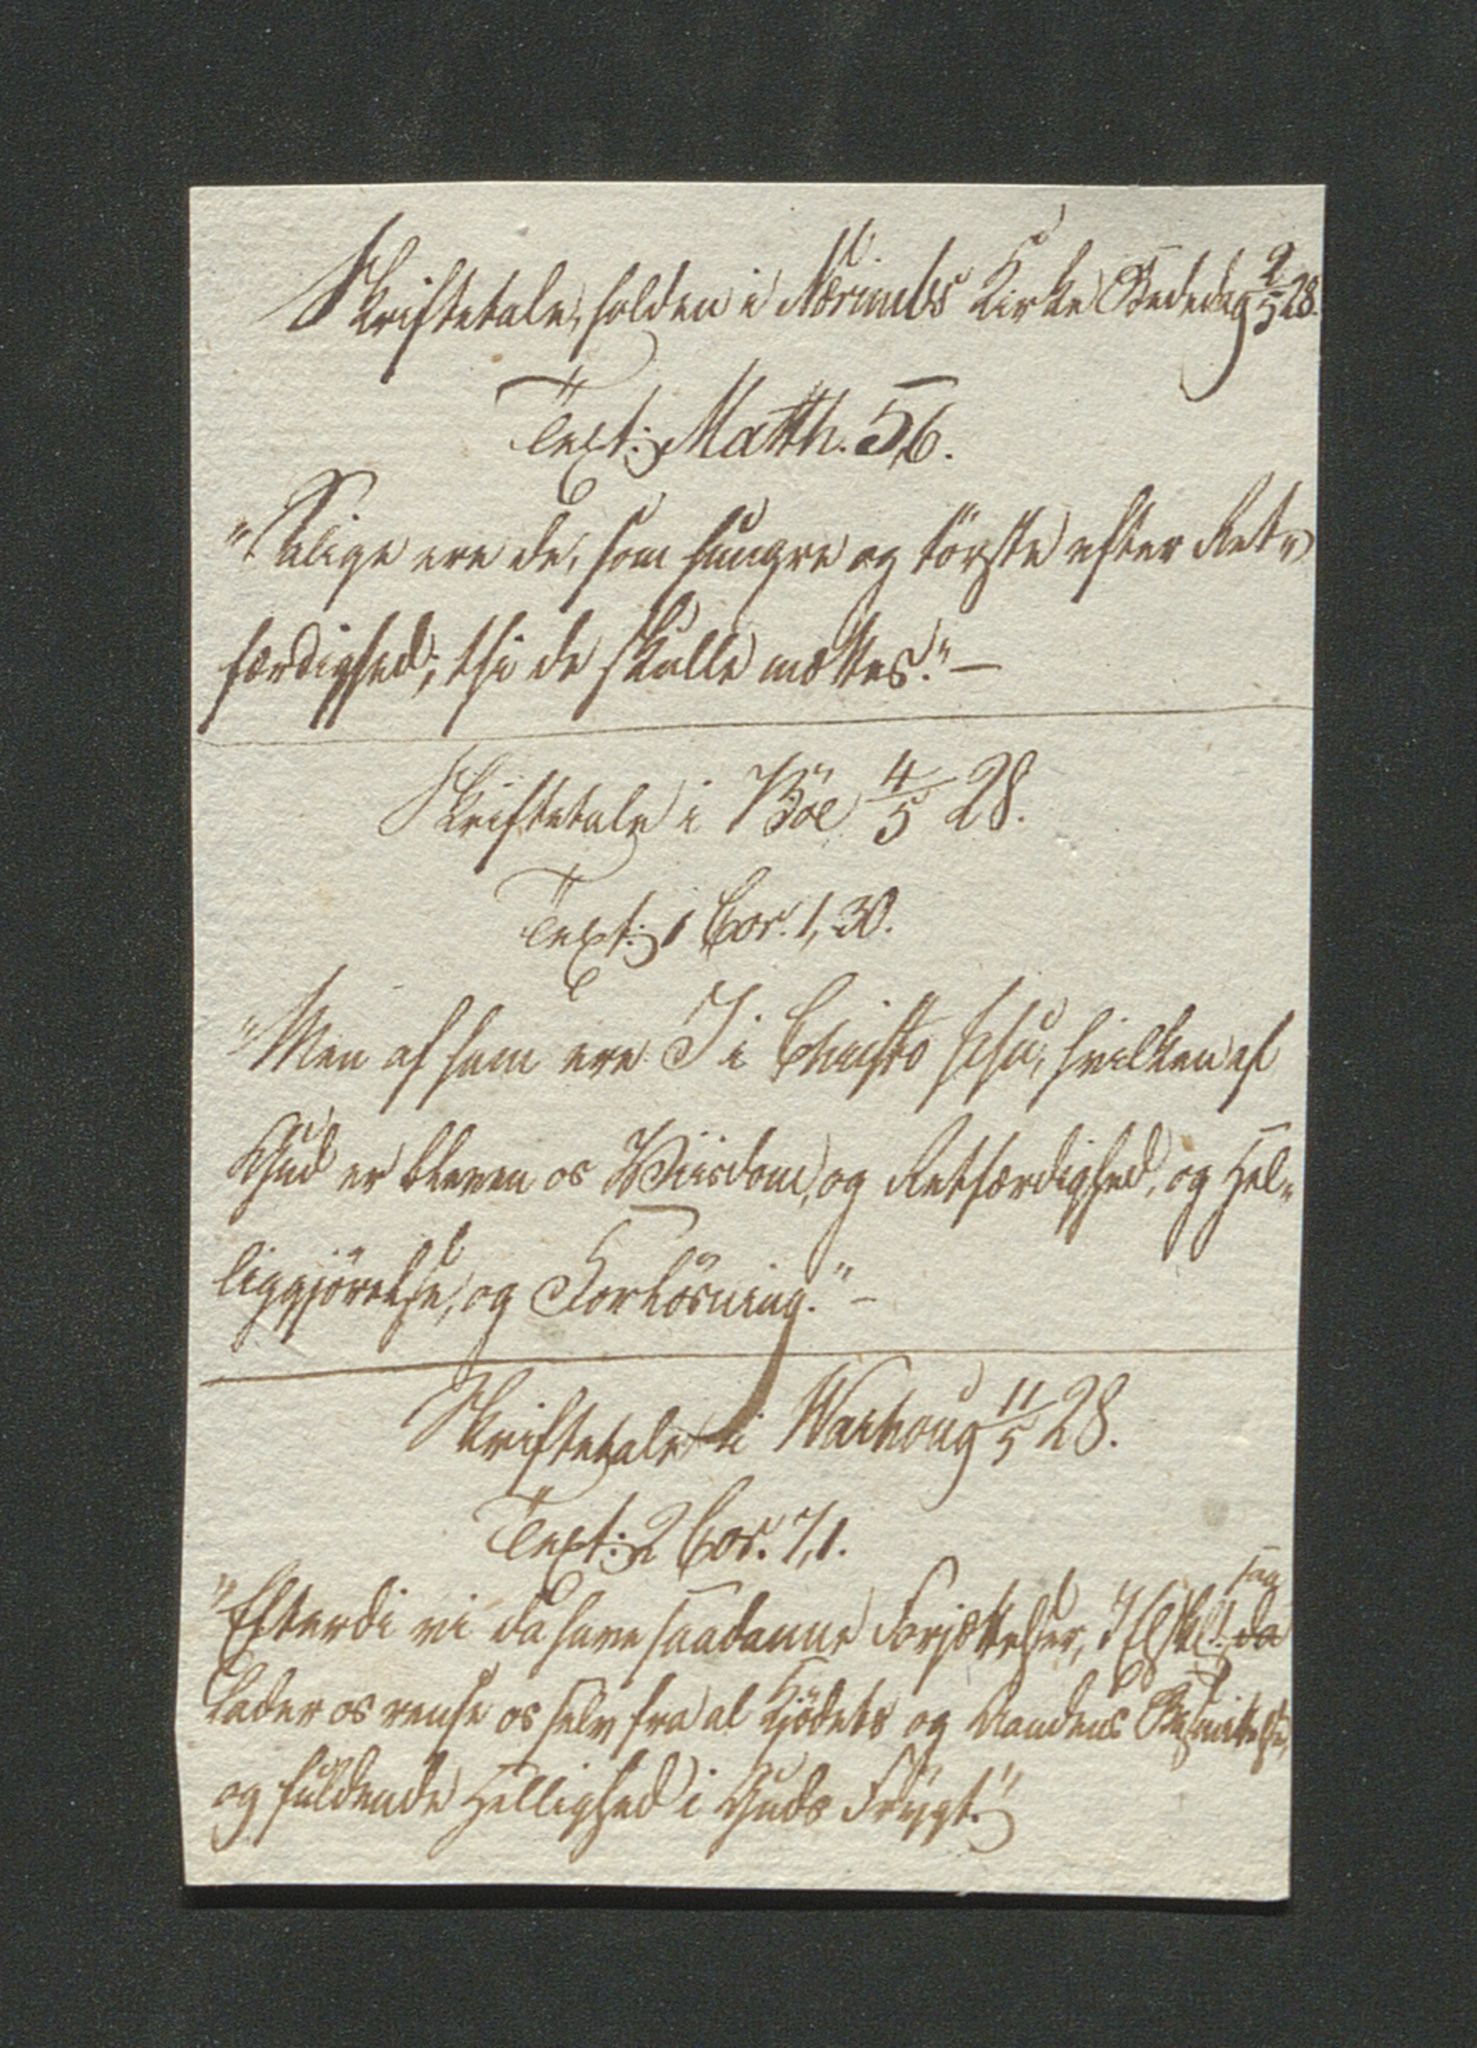 Skriftetale, holden i Kirke Bededag 2/5 28.
Text: Matth. 5,6.
"Salige ere de, som hungre og törste efter Ret-
færdighed; thi de skulle mættes." —
Skriftetale i Böe 4/5 28.
Text: 1 Cor. 1, 30.
"Men af ham ere I i Christo Jesu, hvilken af
Gud er bleven os Wiisdom, og Retfærdighed, og Hel-
liggjörelse, og Forlösning." —
Skriftetale i 11/5 28.
Text: 2 Cor. 7,1.
"Efterdi vi da have saadanne Forjættelser, I Elskel.! da
lader os rense os selv fra al Kjödets og Aandens Besmittelse,
og fuldende Hellighed i Guds Frygt."